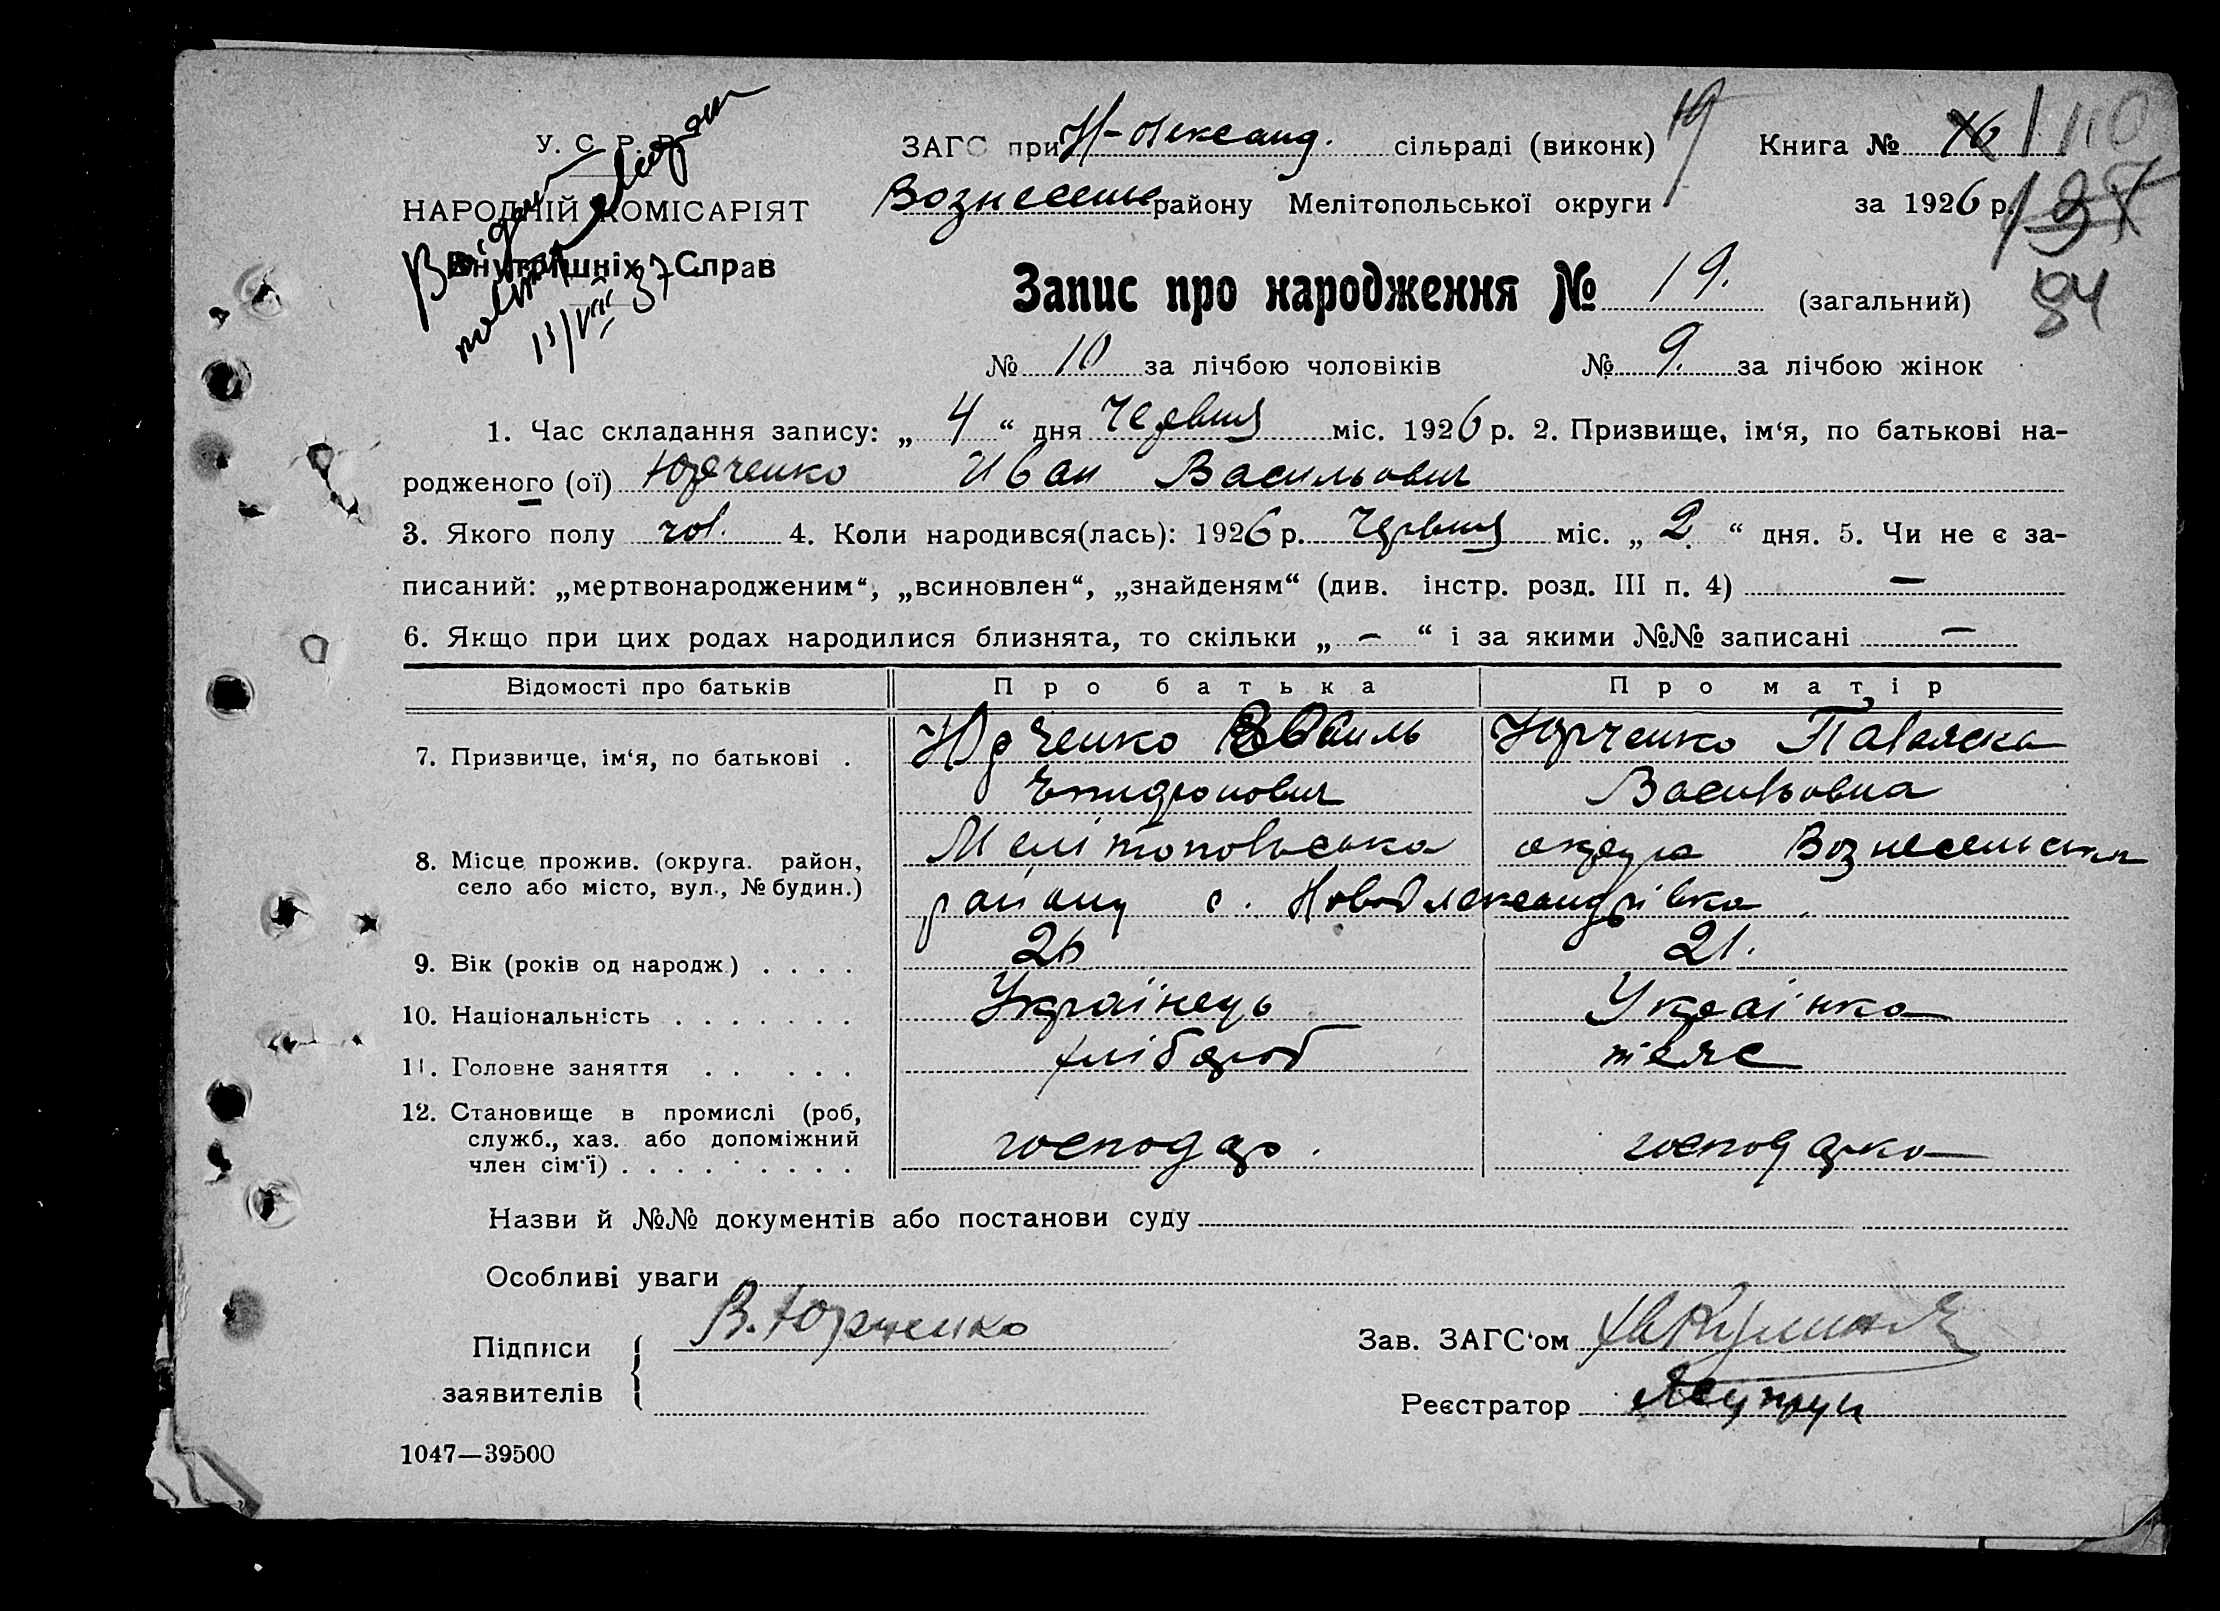 У. С. Р. Р.
НАРОДНІЙ КОМІСАРІЯТ
Внутрішніх Справ
13/VIII 37
ЗАГС при Н-олександ. сільраді (виконк) 19
Книга № 16 1 110
Вознесенс району Мелітопольської округи
за 1926 р.
84
Запис про народження № 19. (загальний)
№ 10 за лічбою чоловіків № 9. за лічбою жінок
1. Час складання запису: „ 4 “ дня Червня міс. 1926 р. 2. Призвище, ім‘я, по батькові на-
родженого (ої) Юрченко Иван Васильович
3. Якого полу чол. 4. Коли народився(лась): 1926 р. Червня міс. „ 2 “ дня. 5. Чи не є за-
писаний: „мертвонародженим“, „всиновлен“, „знайденям“ (див. інстр. розд. III п. 4) —
6. Якщо при цих родах народилися близнята, то скільки „ — “ і за якими №№ записані —
Відомості про батьків Про батька Про матір
7. Призвище, ім‘я, по батькові . Юрченко Василь Юрченко
Васильовна
8. Місце прожив. (округа. район, село або місто, вул., № будин.) Мелітопольська округа Вознесенська
району с. Новоолександрівка
9. Вік (років од народж.) . . . . 26 21.
10. Національність . . . . . . . Українець Українка
11. Головне заняття . . . . . хлібороб теж
12. Становище в промислі (роб, служб., хаз. або допоміжний член сім‘ї) . . . . . . . . . господар. господарка
Назви й №№ документів або постанови суду
Особливі уваги
Підписи заявителів В. Юрченко
Зав. ЗАГС‘ом
Реєстратор
1047—39500